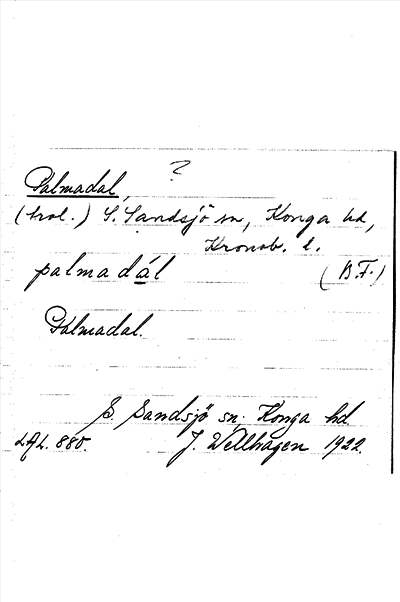 ?
Palmadal,
(trol.) S. Sandsjö sn, Konga hd,
Kronob. l.
palmadál (B.F.)
Palmadal.
S. Sandsjö sn. Konga hd.
LAL. 880. J. Wellhagen 1922.